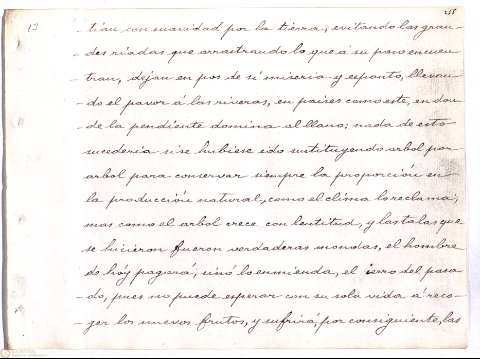 255
12
tían con suavidad por la tierra, evitando las gran-
des riadas que arrastrando lo que á su paso encuen-
tran, dejan en pos de sí miseria y espanto, llevan-
do el pavor á las riveras, en paises como este, en don-
de la pendiente domina al llano; nada de esto
sucederia si se hubiese ido sustituyendo arbol por
arbol para conservar siempre la proporción en
la producción natural, como el clima lo reclama;
mas como el arbol crece con lentitud, y las talas que
se hicieron fueron verdaderas mondas, el hombre
de hóy pagará, sinó lo enmienda, el ierro del pasa-
do, pues no puede esperar con su sola vida á reco-
ger los nuevos frutos, y sufrirá, por consiguiente, las